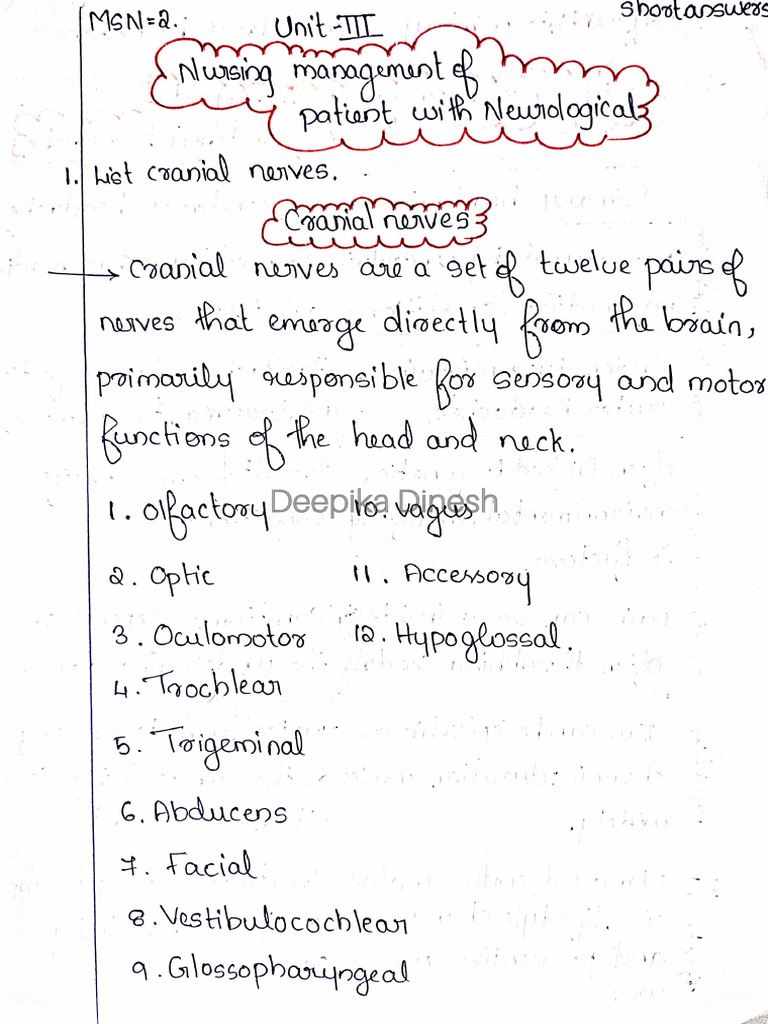 MSN=2.
Unit-III
Shortanswers
Nursing management of
patient with Neurological
1. List cranial nerves.
Cranial nerves
→ Cranial nerves are a set of twelve pairs of
nerves that emerge directly from the brain,
primarily responsible for sensory and motor
functions of the head and neck.
Deepika Dinesh
1. Olfactory
2. Optic
3. Oculomotor
4. Trochlear
5. Trigeminal
6. Abducens
7. Facial
8. Vestibulocochlear
9. Glossopharyngeal
10. Vagus
11. Accessory
12. Hypoglossal.